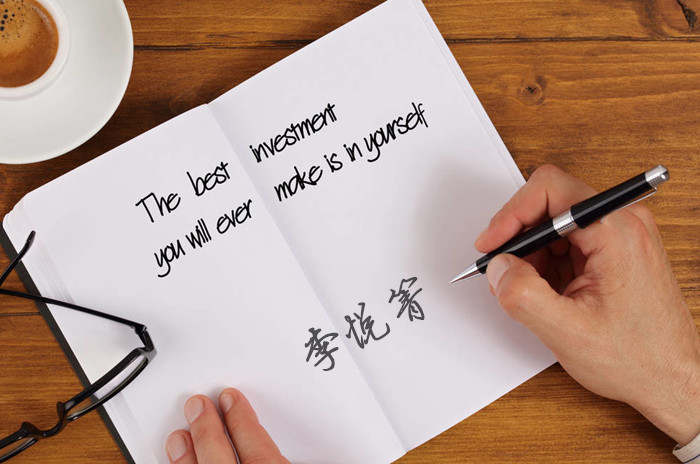 The best investment
you will ever make is in yourself
李悦箐